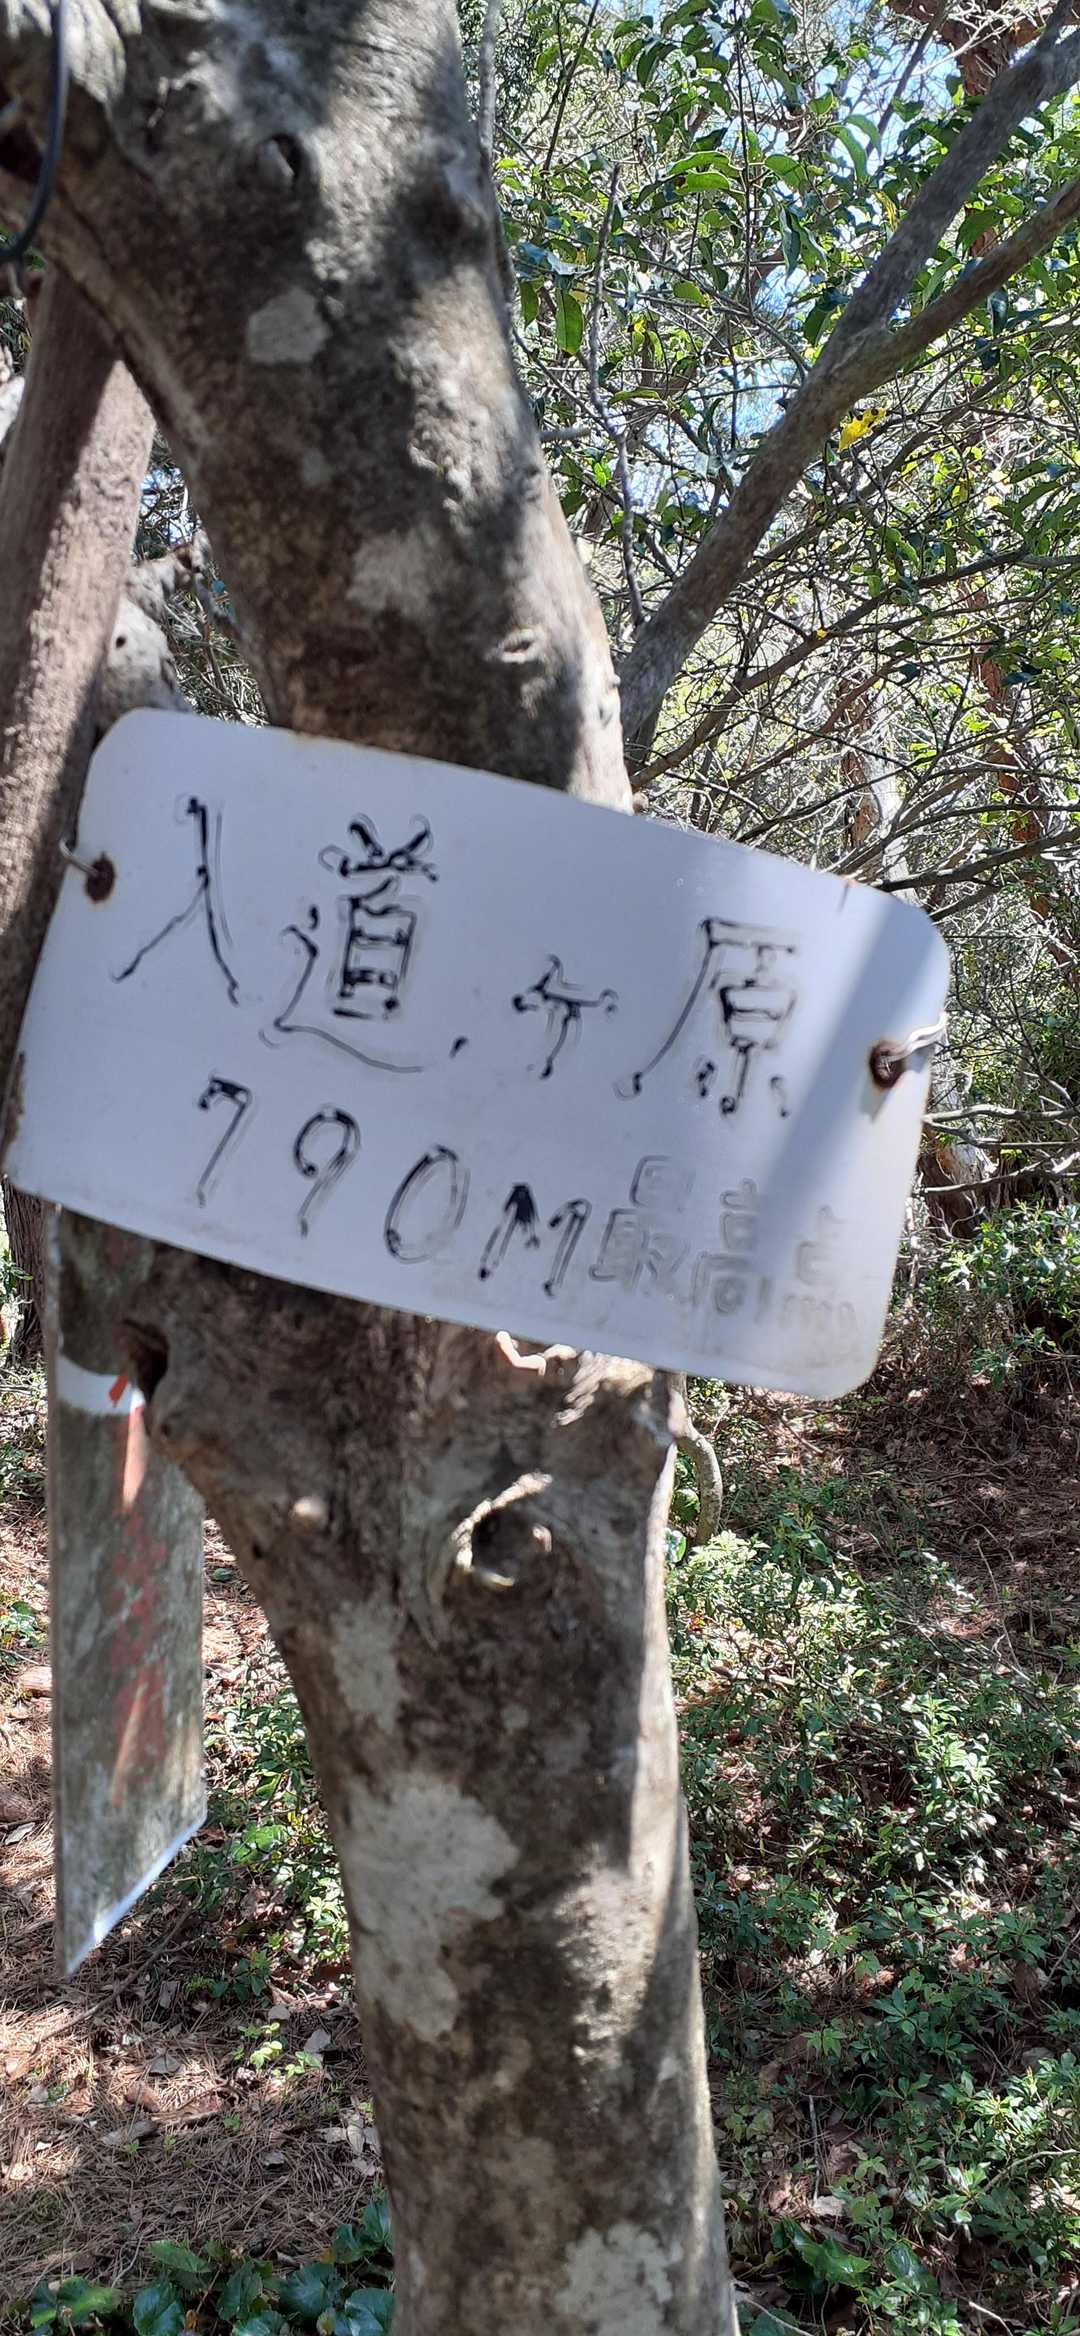 入道ヶ原
790M最高点